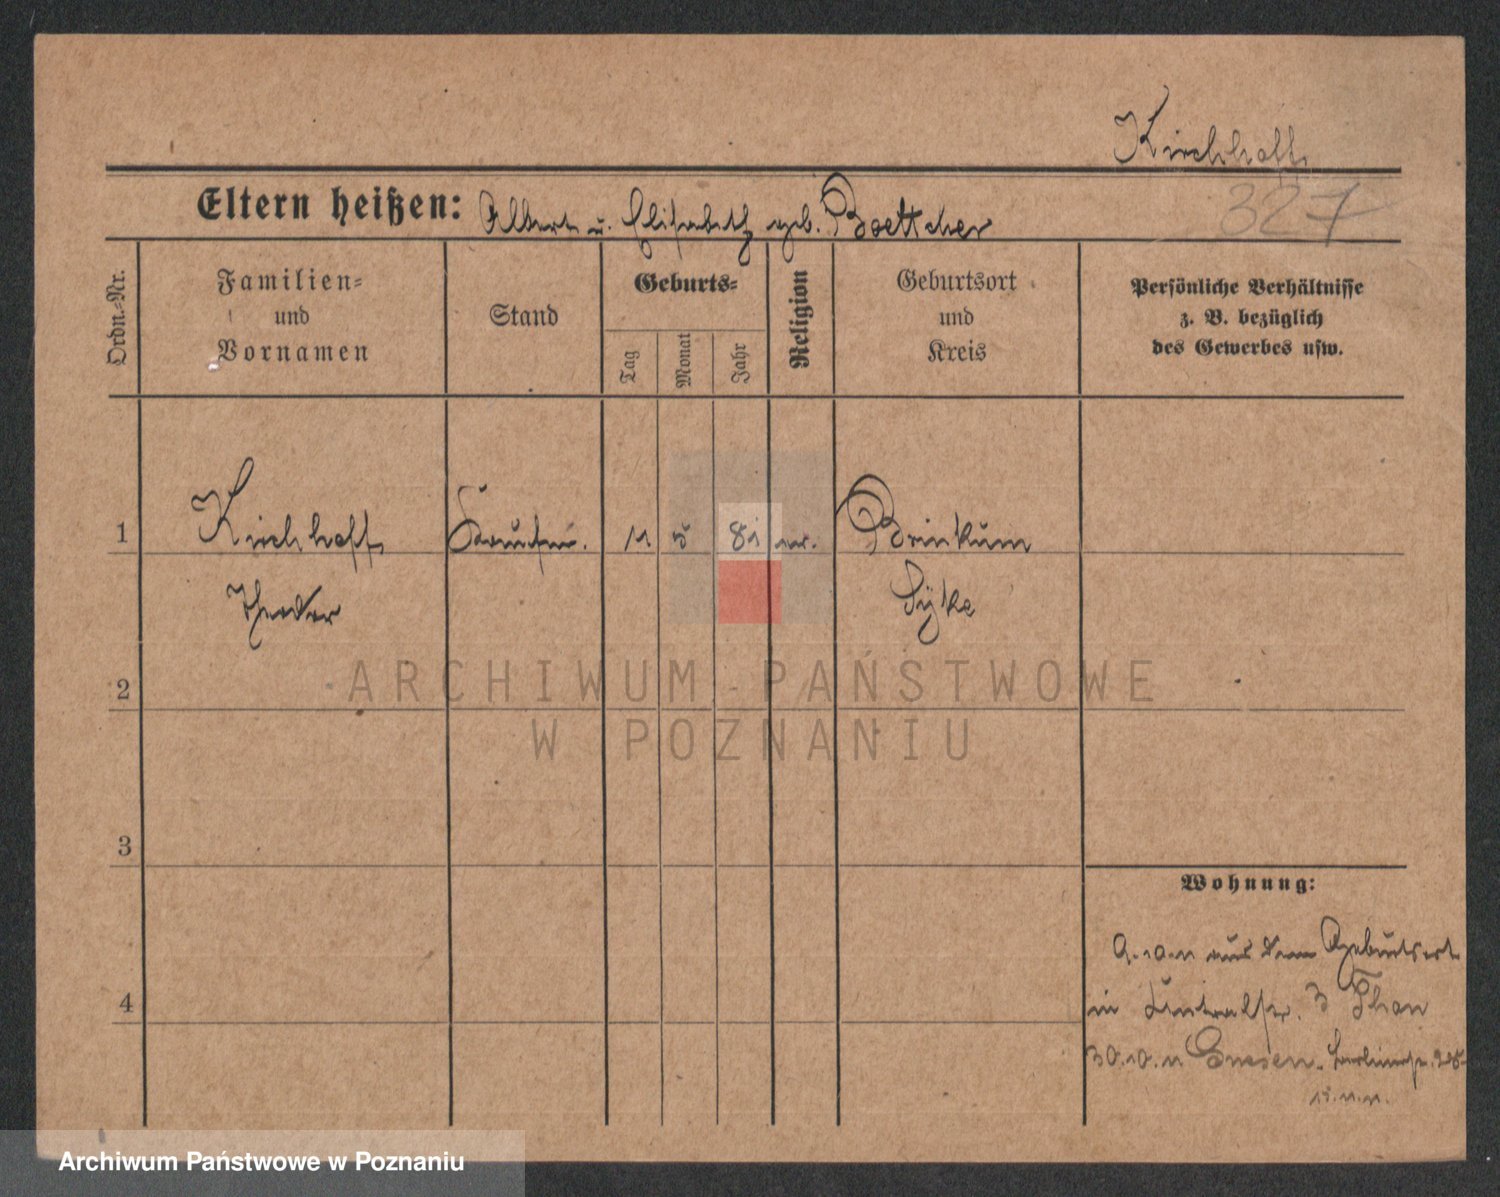 Kirchhoff
327
Eltern heißen: Albert u. Elisabeth geb. Boettcher
Ordn.-Nr.
Familien-
und
Vornamen
Stand
Geburts-
Tag
Monat
Jahr
Religion
Geburtsort
und
Kreis
Persönliche Verhältnisse
z. B. bezüglich
des Gewerbes usw.
1 Kirchhoff 11 5 81 Brinkum
Theodor Syke
2
ARCHIWUM PAŃSTWOWE
W POZNANIU
3
Wohnung:
aus dem Geburtsort
4
in 3
30.10.11 Gnesen.
15.11.11.
Archiwum Państwowe w Poznaniu